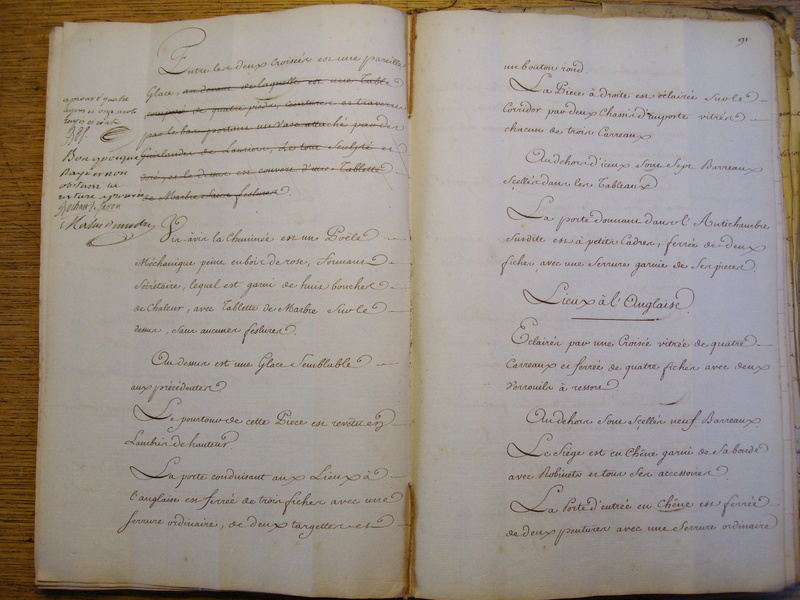 Entre les deux Croisées est une pareille
Glace, au devant de laquelle est une Table
composée de quatre pieds, ceintures et traverses
par le bas portant un Vase attaché par des
Guirlandes de Lauriers, le tout Sculpté et
doré, et le dessus est couvert d'une Tablette
de Marbre Sans feslures.
approuvé quatre
lignes et onze mots
rayés
Bon
Rayé et non
approuvée
Vis à vis la Cheminée est un Poële
Méchanique peint en bois de rose, formant
Sécrétaire, lequel est garni de huit bouches
de Chaleur, avec Tablette de Marbre Sur le
dessus, sans aucunes feslures.
Au dessus est une Glace Semblable
aux précédentes
Le pourtour de cette Piece est revêtu en
Lambris de hauteur.
La porte conduisant aux Lieux à
l'anglaise est ferrée de trois fiches avec une
serrure ordinaire, de deux targettes et
191
un bouton rond.
La Piece à droite est éclairée Sur le
Corridor par deux Chassis d'imposte vitrés
chacun de trois Carreaux.
Au dehors d'iceux Sont Sept Barreaux
Scellés dans les Tableaux.
La porte donnant dans l'Antichambre
Susdite est à petits Cadres, ferrée de deux
fiches, avec une Serrure garnie de Ses pieces.
Lieux à l'Anglaise.
Eclairés par une Croisée vitrée de quatre
Carreaux et ferrée de quatre fiches avec deux
Verrouils à ressort.
Au dehors Sont Scellés neuf Barreaux.
Le Siège est en Chêne garni de sa bonde
avec Robinets et tous Ses accessoires.
La Porte d'entrée en Chêne est ferrée
de deux pentures avec une Serrure ordinaire